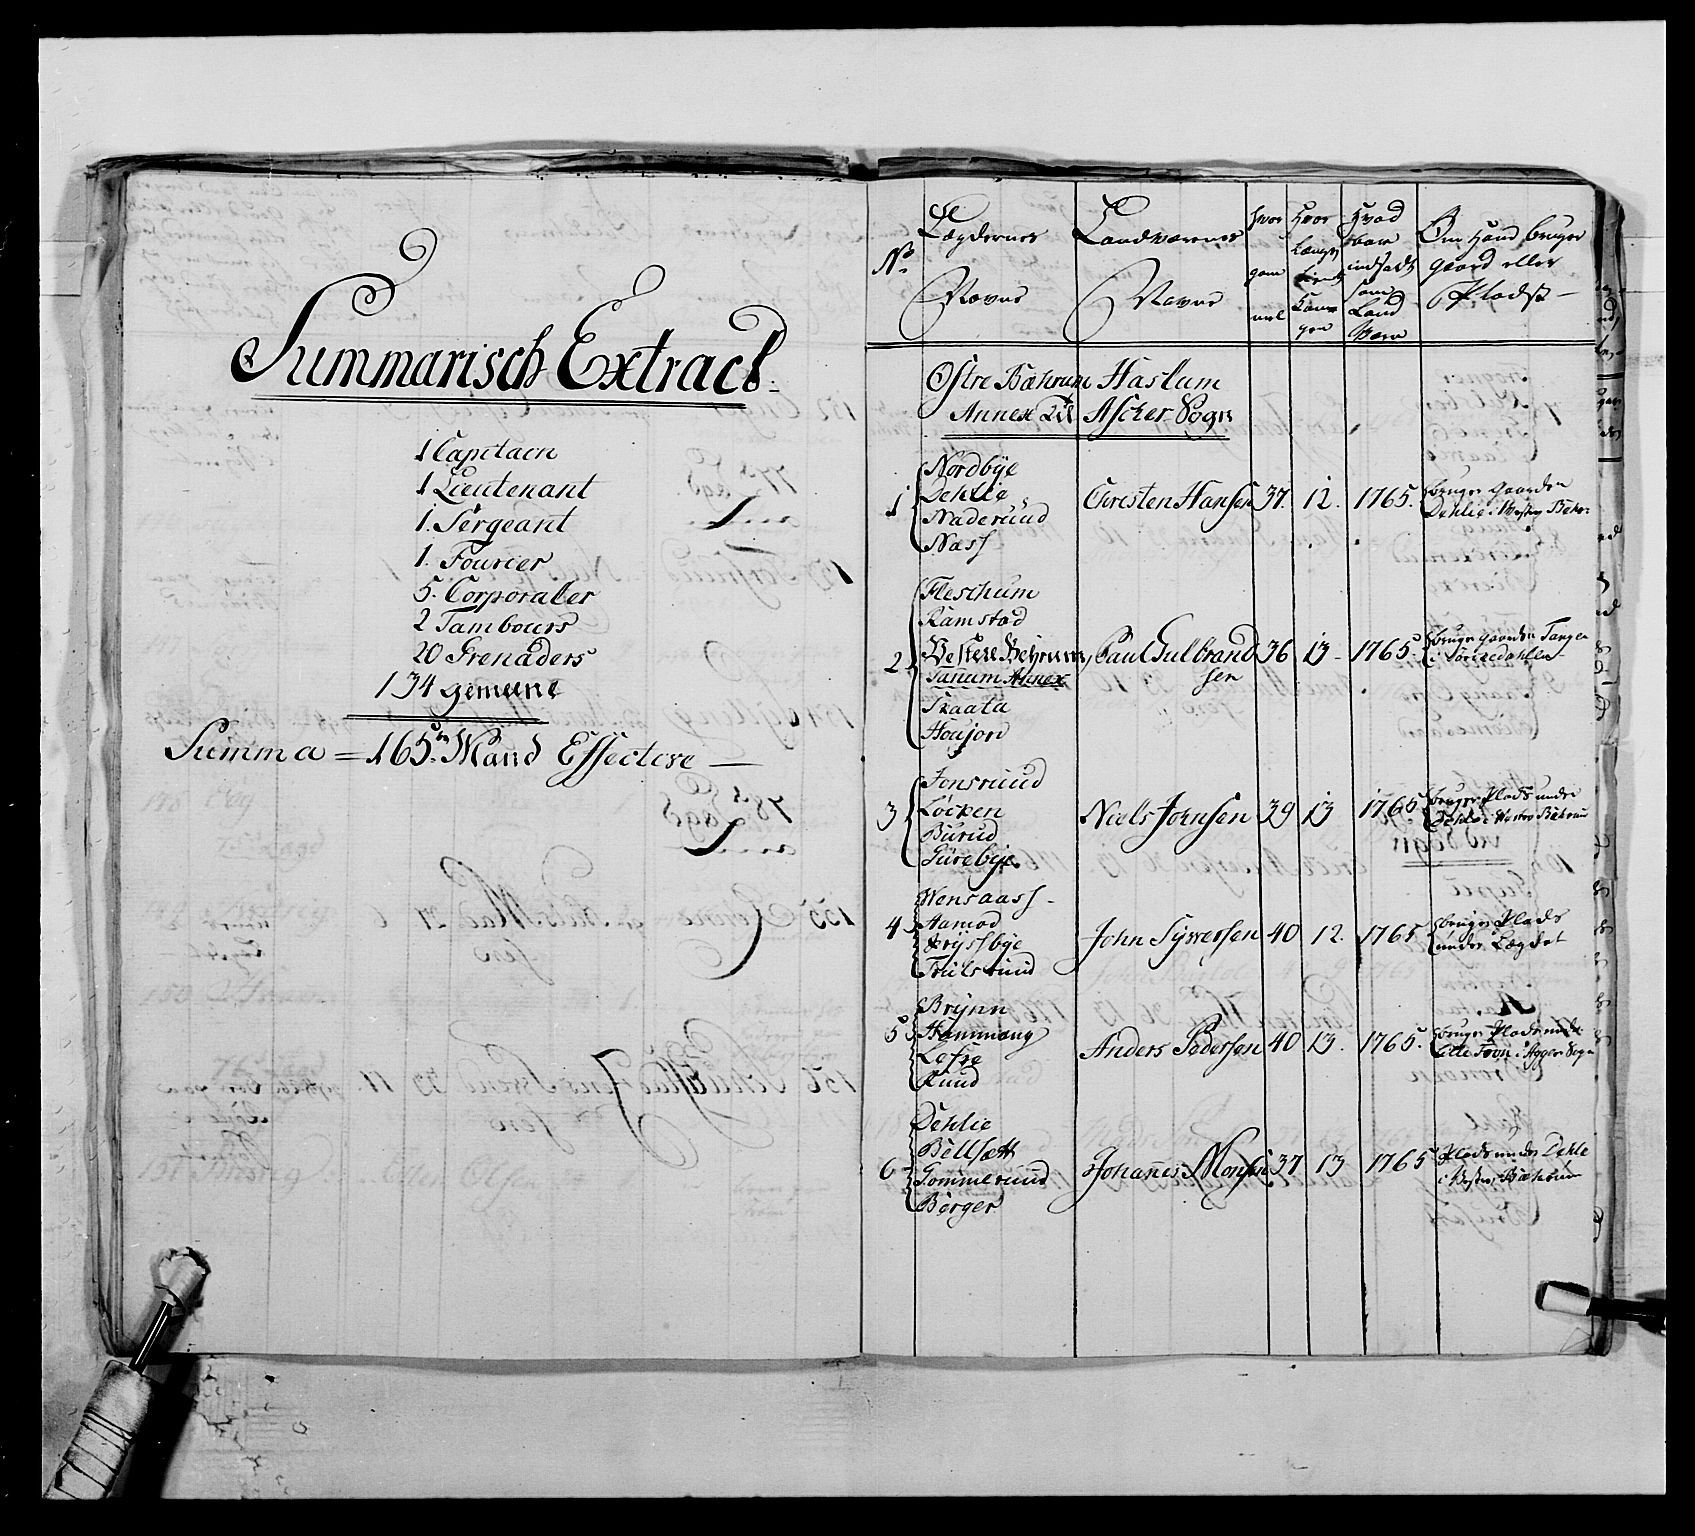 Summarisch Extract
1 Capitaen
1 Lieutenant
1. Sergeant
1. Fourier
5. Corporaler
2 Tambours
20 Grenaders
134 gemeene
Summa = 165 Mand Effective —
No Lægdernes Navne
Landværnes Navne
hvor gammel
Hvor længe tient Kongen
Hvad Aar indsadt som Land Værn
Om Hand bruger gaard eller Plads —
Østre Bæhrum Haslum
Annex Til Ascher Sogn
1 Nordbÿe
Dehlie
Naderuud
Næss
Christen Hansen 37. 12. 1765. bruger gaarden
Dehlie i Westre Bæhr:
2 Fleschum
Ramstad
Vestere Behrum,
Tanum Annex
Skaata
Houjon
Paul Gulbrand
sen
36 13 - 1765. bruger gaarden Tangen
i Sørkedahlen
3 Jonsruud
Løcken
Burud
Gurebÿe
Niels Jonsen 29 13 1765 bruger Plads under
Dehlie i Westre Bæhrum
4 Wensaass -
Aamod
Frÿssbÿe
Trulsruud
John Sÿwersen 40 12. 1765 bruger Plads
under Lægdet
5 Brÿnn
Hammang
Lefre
Ruud
Anders Pedersen 40 13. 1765. bruger Plads under
i Agger Sogn
6 Dehlie
Bellsætt
Gommeruud
Berger
Johannes Monsen 37 13 1765 Plads under Dehle
i Vestre Bæhrum